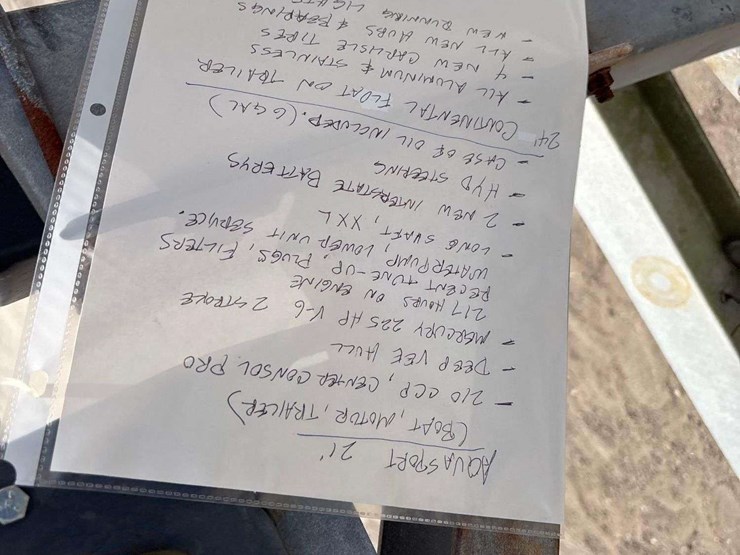 AQUASPORT 21'
(BOAT, MOTOR, TRAILER)
- 210 CCP, CENTER CONSOL PRO
- DEEP VEE HULL
- MERCURY 225 HP V-6 2 STROKE
217 HOURS ON ENGINE
RECENT TUNE-UP, PLUGS, FILTERS
WATERPUMP, LOWER UNIT SERVICE.
- LONG SHAFT, XXL
- 2 NEW INTERSTATE BATTERYS
- HYD STEERING
- CASE OF OIL INCLUDED. (6 GAL)
24' CONTINENTAL FLOAT ON TRAILER
- ALL ALUMINUM & STAINLESS
- 4 NEW CARLISLE TIRES
- ALL NEW HUBS & BEARINGS
- NEW RUNNING LIGHTS